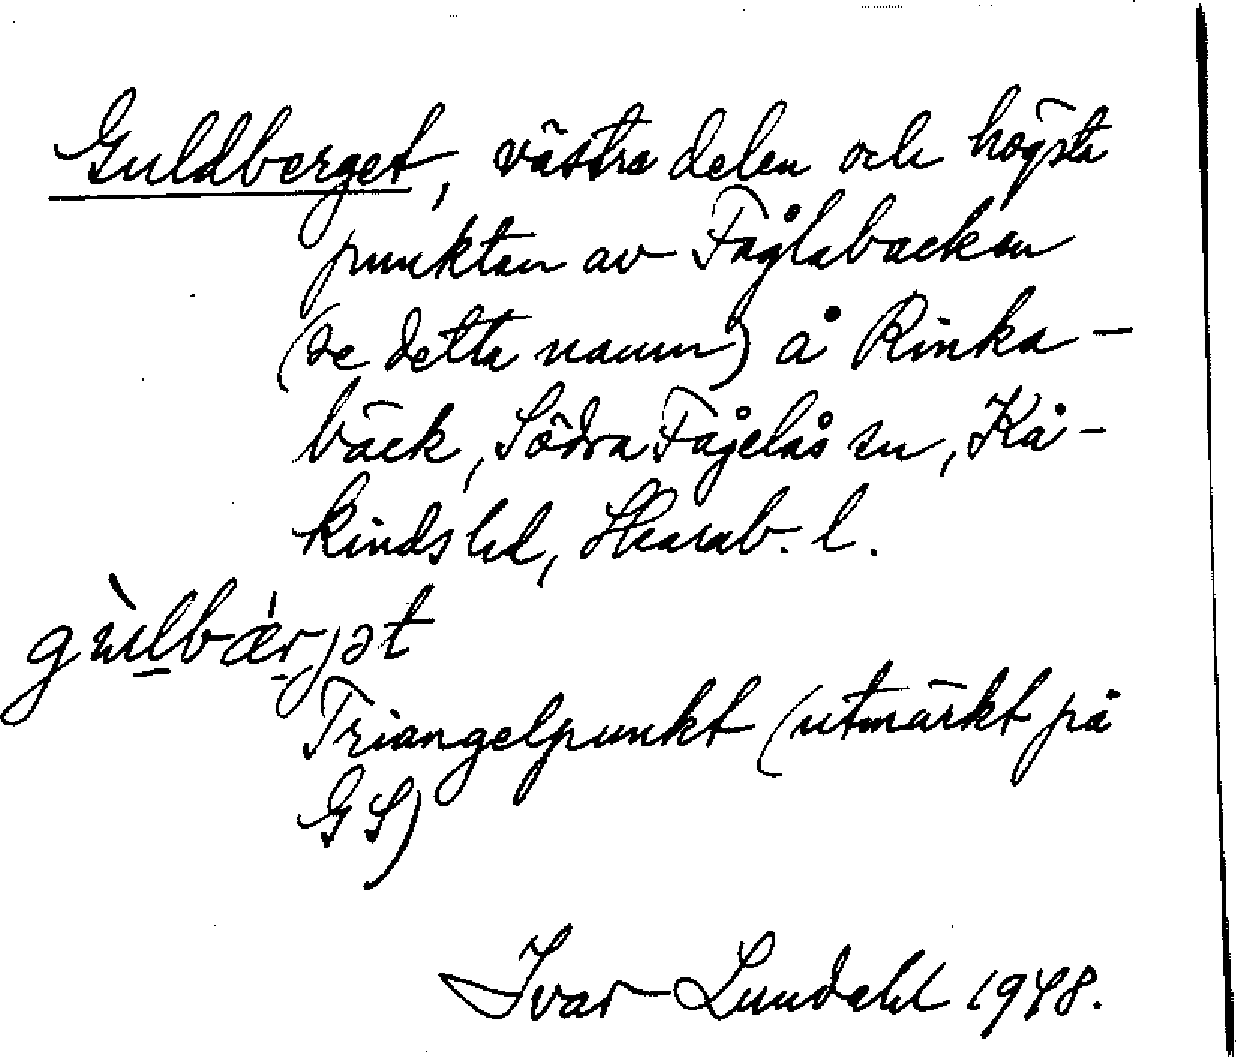 Guldberget, västra delen och högsta
punkten av Fåglabacken
(se detta namn) å Rinka-
bäck, Södra Fågelås sn, Kå-
kinds hd, Skarab. l.
gùlbǽrjət
Triangelpunkt (utmärkt på
GS)
Ivar Lundahl 1948.